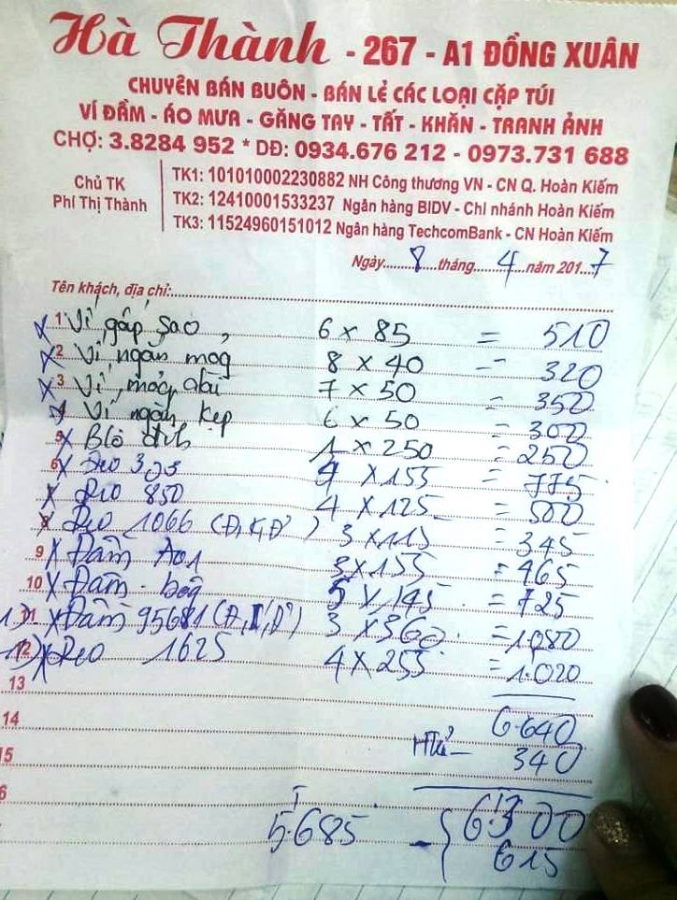 Hà Thành - 267 - A1 ĐỒNG XUÂN
CHUYÊN BÁN BUÔN - BÁN LẺ CÁC LOẠI CẶP TÚI
VÍ ĐẦM - ÁO MƯA - GĂNG TAY - TẤT - KHĂN - TRANH ẢNH
CHỢ: 3.8284 952 * DĐ: 0934.676 212 - 0973.731 688
Chủ TK
Phí Thị Thành
TK1: 101010002230882 NH Công thương VN - CN Q. Hoàn Kiếm
TK2: 12410001533237 Ngân hàng BIDV - Chi nhánh Hoàn Kiếm
TK3: 11524960151012 Ngân hàng TechcomBank - CN Hoàn Kiếm
Ngày 8 tháng 4 năm 2017
Tên khách, địa chỉ:
x 1 Ví gấp sao 6 x 85 = 510
x 2 Ví ngắn 8 x 40 = 320
x 3 Ví 7 x 50 = 350
4 Ví ngắn kẹp 6 x 50 = 300
5 x 1 x 250 = 250
6 x Đeo x 155 = 775
x Đeo 850 4 x 125 = 500
8 x Đeo 1066 3 x 115 = 345
9 x Đầm A01 3 x 155 = 465
10 x Đầm 5 x 145 = 725
11 x Đầm 95681 3 x 360 = 1080
12 x Đeo 1625 4 x 255 = 1.020
13
14 6.640
15 340
6 6.300
5.685 - 615